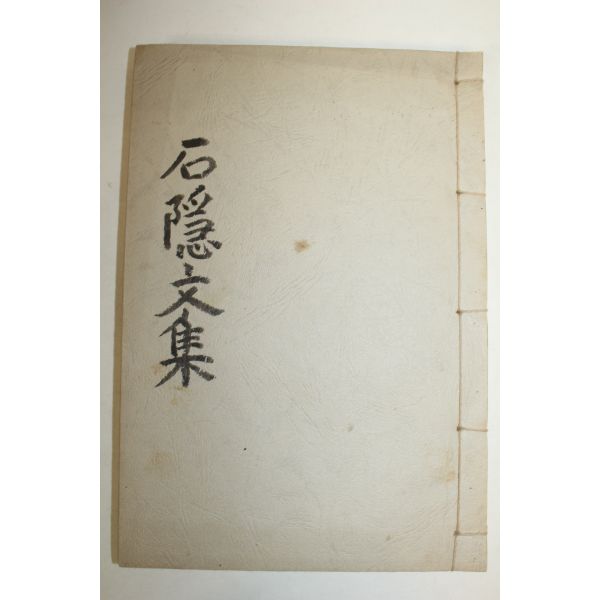 石隱文集